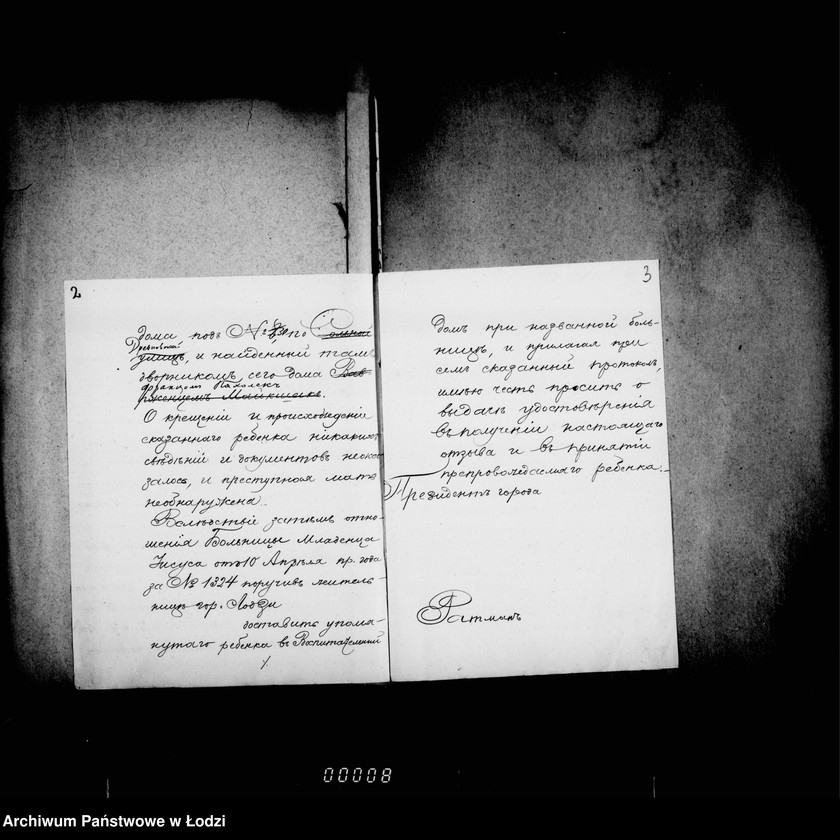 2
дома подъ № по Сольной
Древновской
улицѣ, и найденный тамъ
дворникомъ сего дома
францом
О крещеніи и происхожденіи
сказаннаго ребенка никакихъ
свѣдѣній и документовъ неока
залось, и преступная мать
необнаружена.
Вслѣдствіе затѣмъ отно-
шенія Больницы Младенца
Іисуса отъ 10 Апрѣля пр. года
за № 1324 поручивъ житель-
ницѣ гор. Лодзи
доставить упомя-
нутаго ребенка въ Воспитательный
./.
3
Домъ при названной боль-
ницѣ, и прилагая при
семъ сказанный протоколъ,
имѣю честь просить о
выдачѣ удостовѣренія
въ полученіи настоящаго
отзыва и въ принятіи
препровождаемаго ребенка.
Президентъ города
Ратманъ
00008
Archiwum Państwowe w Łodzi